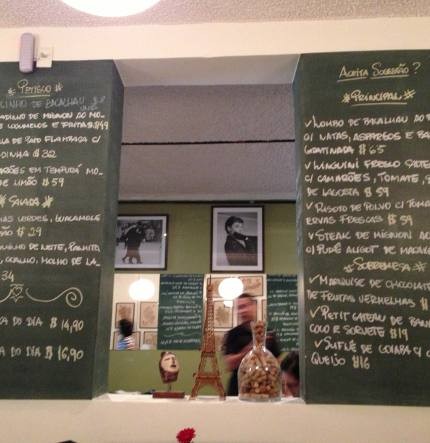 * PETISCO *
LINHO DE BACALHAU $8
ADINHO DE MIGNON AO MO-
E COGUMELOS E FRITAS $49
FLAMBADA C/
DINHA $32
ARÕES EM TEMPURÁ MO-
DE LIMÃO $59
* SALADA *
VERDES, GUACAMOLE
ÃO $29
DE LEITE, PALMITO,
COALHO, MOLHO DE LA-
34
DO DIA $14,90
DO DIA $16,90
ACEITA SUGESTÃO?
* PRINCIPAL *
✓ LOMBO DE BACALHAU AO
C/ NATAS, ASPARGOS E
GRATINADA $65
✓ LINGUINI FRESCO
C/ CAMARÕES, TOMATE,
DE LAGOSTA $59
✓ RISOTO DE POLVO C/
ERVAS FRESCAS $59
✓ STEAK DE MIGNON
C/ PURÊ ALIGOT DE
* SOBREMESA *
✓ MARQUISE DE CHOCOLATE
DE FRUTAS VERMELHAS $
✓ PETIT GATEAU DE
COCO E SORVETE $19
✓ SUFLÊ DE GOIABA C/
QUEIJO $16